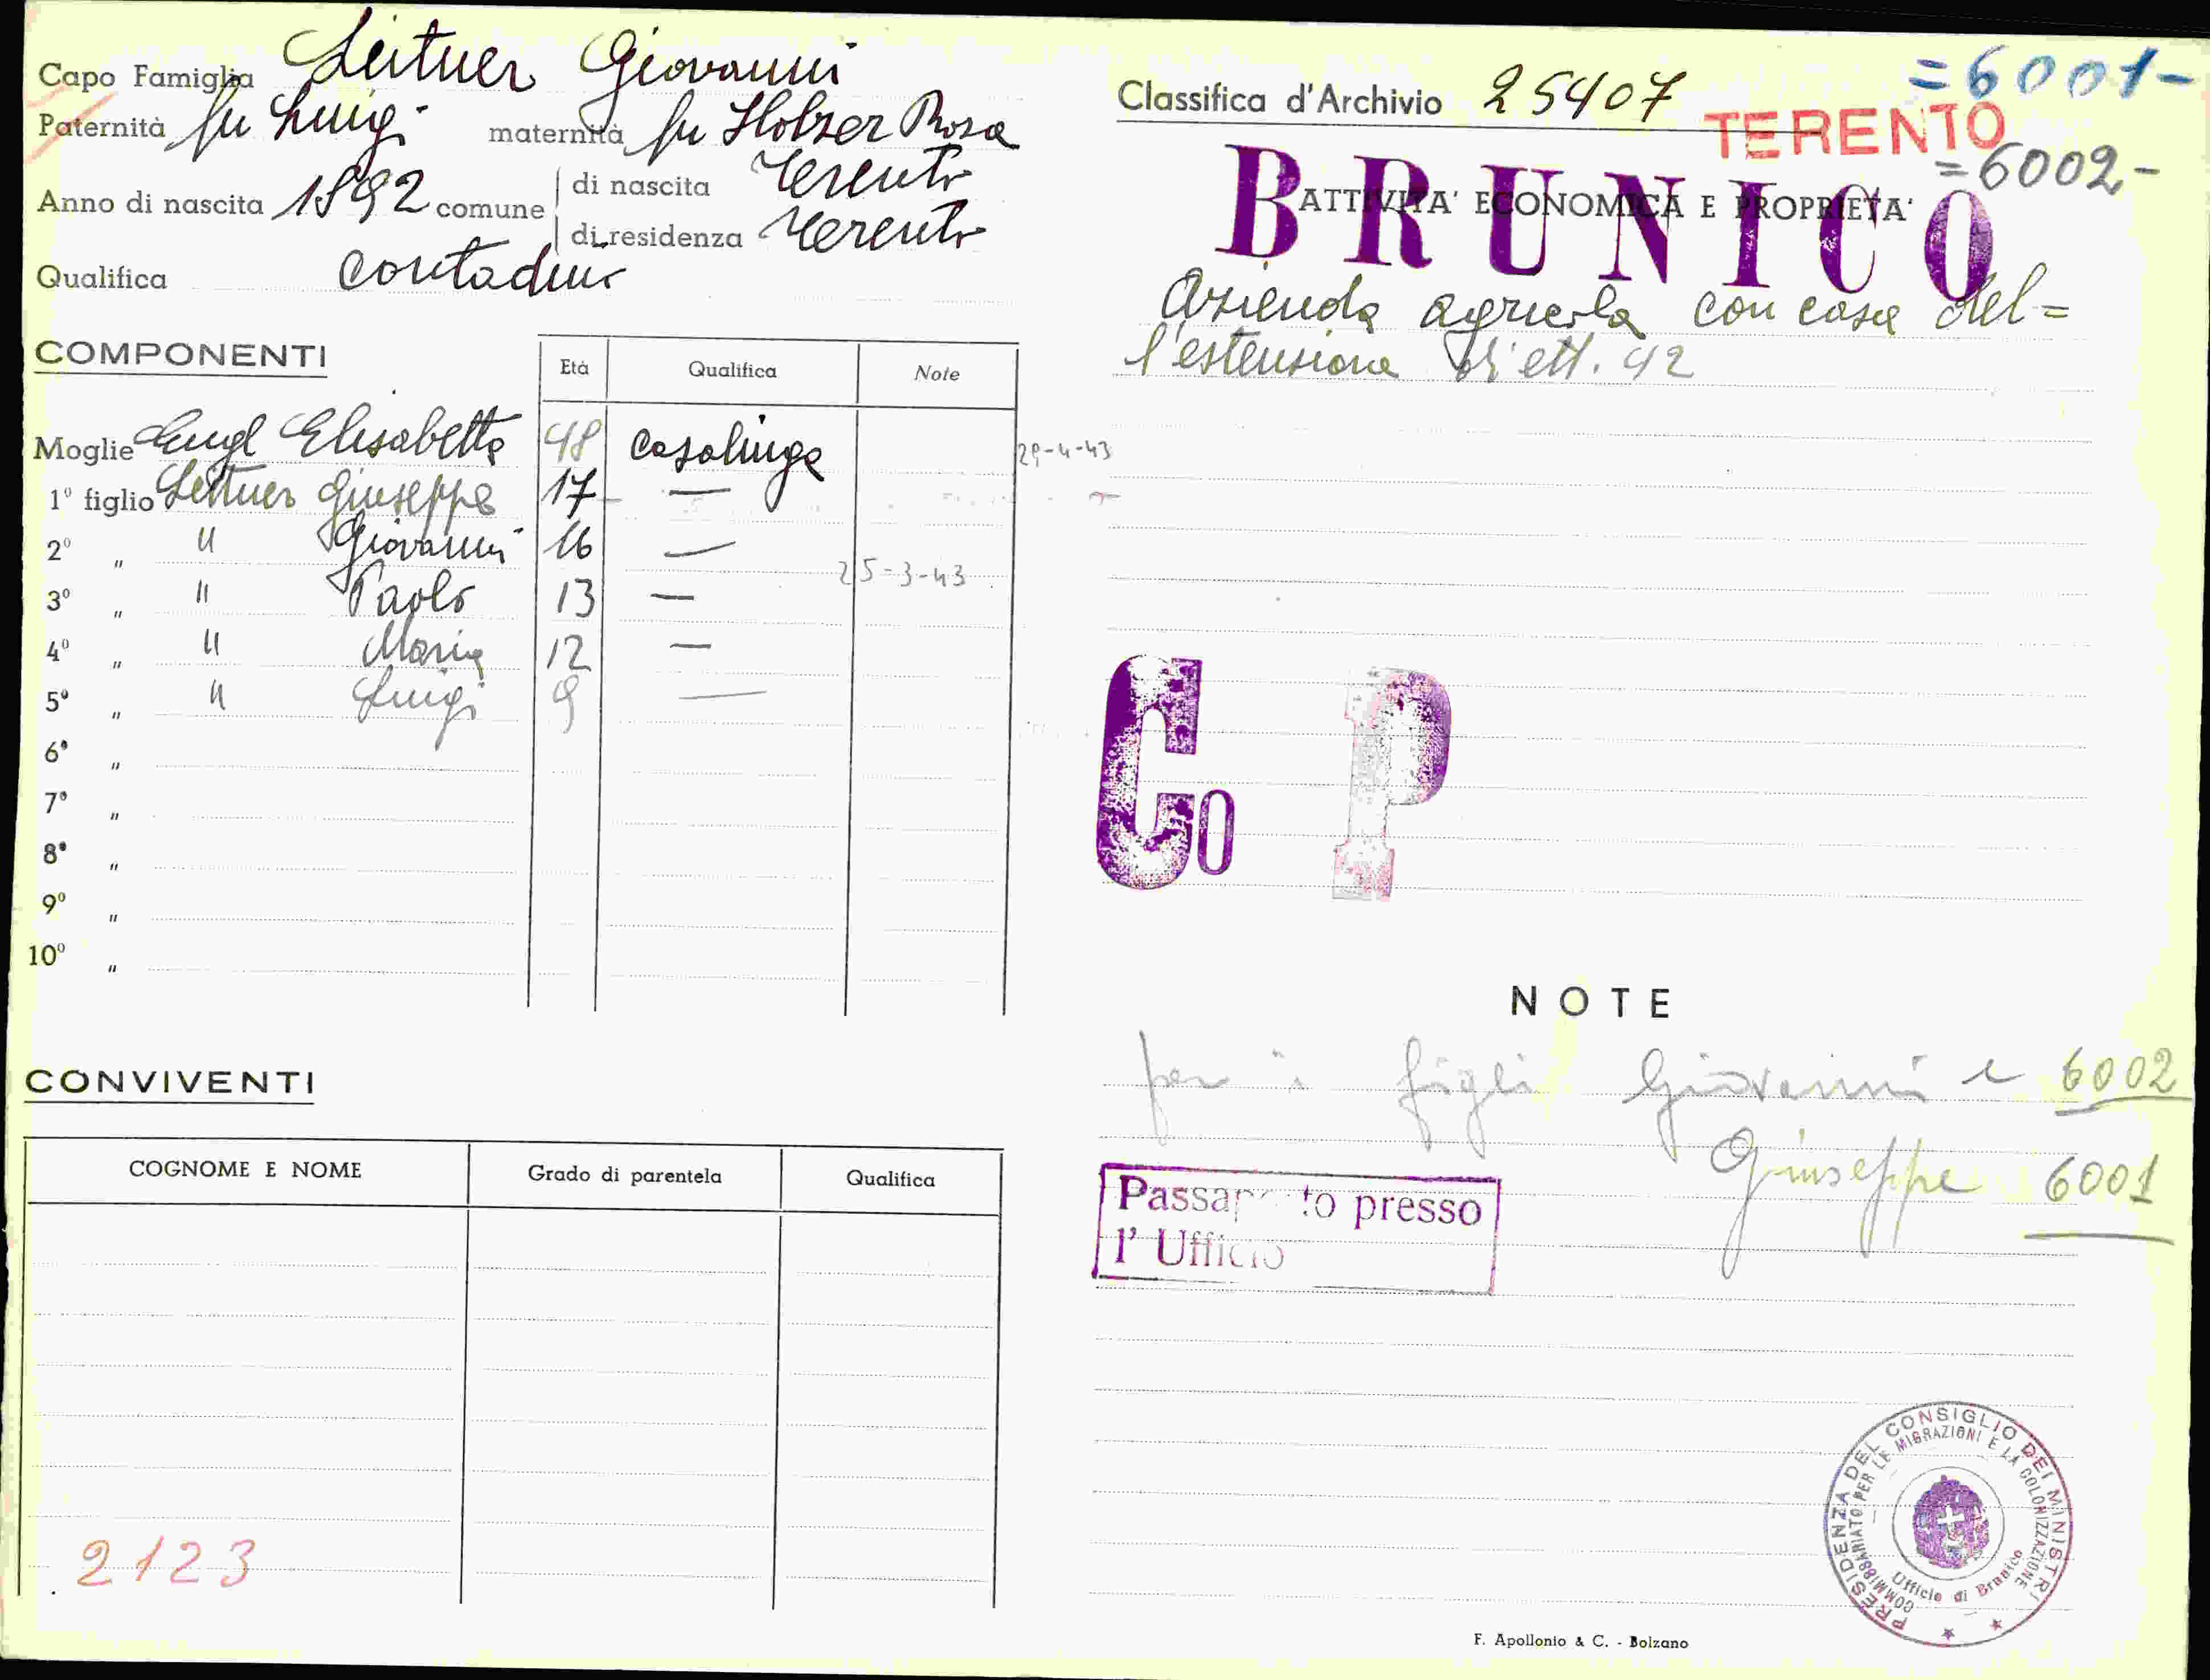 Capo Famiglia Leitner Giovanni
Paternità fu Luigi maternità fu Holzer Rosa
Anno di nascita 1892 comune di nascita Terento
di residenza Terento
Qualifica contadino
COMPONENTI
Età Qualifica Note
Moglie Engl Elisabetta 48 casalinga 29-4-43
1º figlio Leitner Giuseppe 17 —
2º " " Giovanni 16 —
25-3-43
3º " " Paolo 13 —
4º " " Maria 12 —
5º " " Luigi 9 —
6º "
7º "
8º "
9º "
10º "
CONVIVENTI
COGNOME E NOME Grado di parentela Qualifica
2123
Classifica d'Archivio 25407
=6001-
TERENTO
=6002-
BRUNICO
ATTIVITA' ECONOMICA E PROPRIETA'
Azienda agricola con casa del=
l'estensione di ett. 42
Co P
NOTE
per i figli Giovanni e 6002
Giuseppe 6001
Passaporto presso
l'Ufficio
PRESIDENZA DEL CONSIGLIO DEI MINISTRI
COMMISSARIATO PER LE MIGRAZIONI E LA COLONIZZAZIONE
Ufficio di Brunico
F. Apollonio & C. - Bolzano